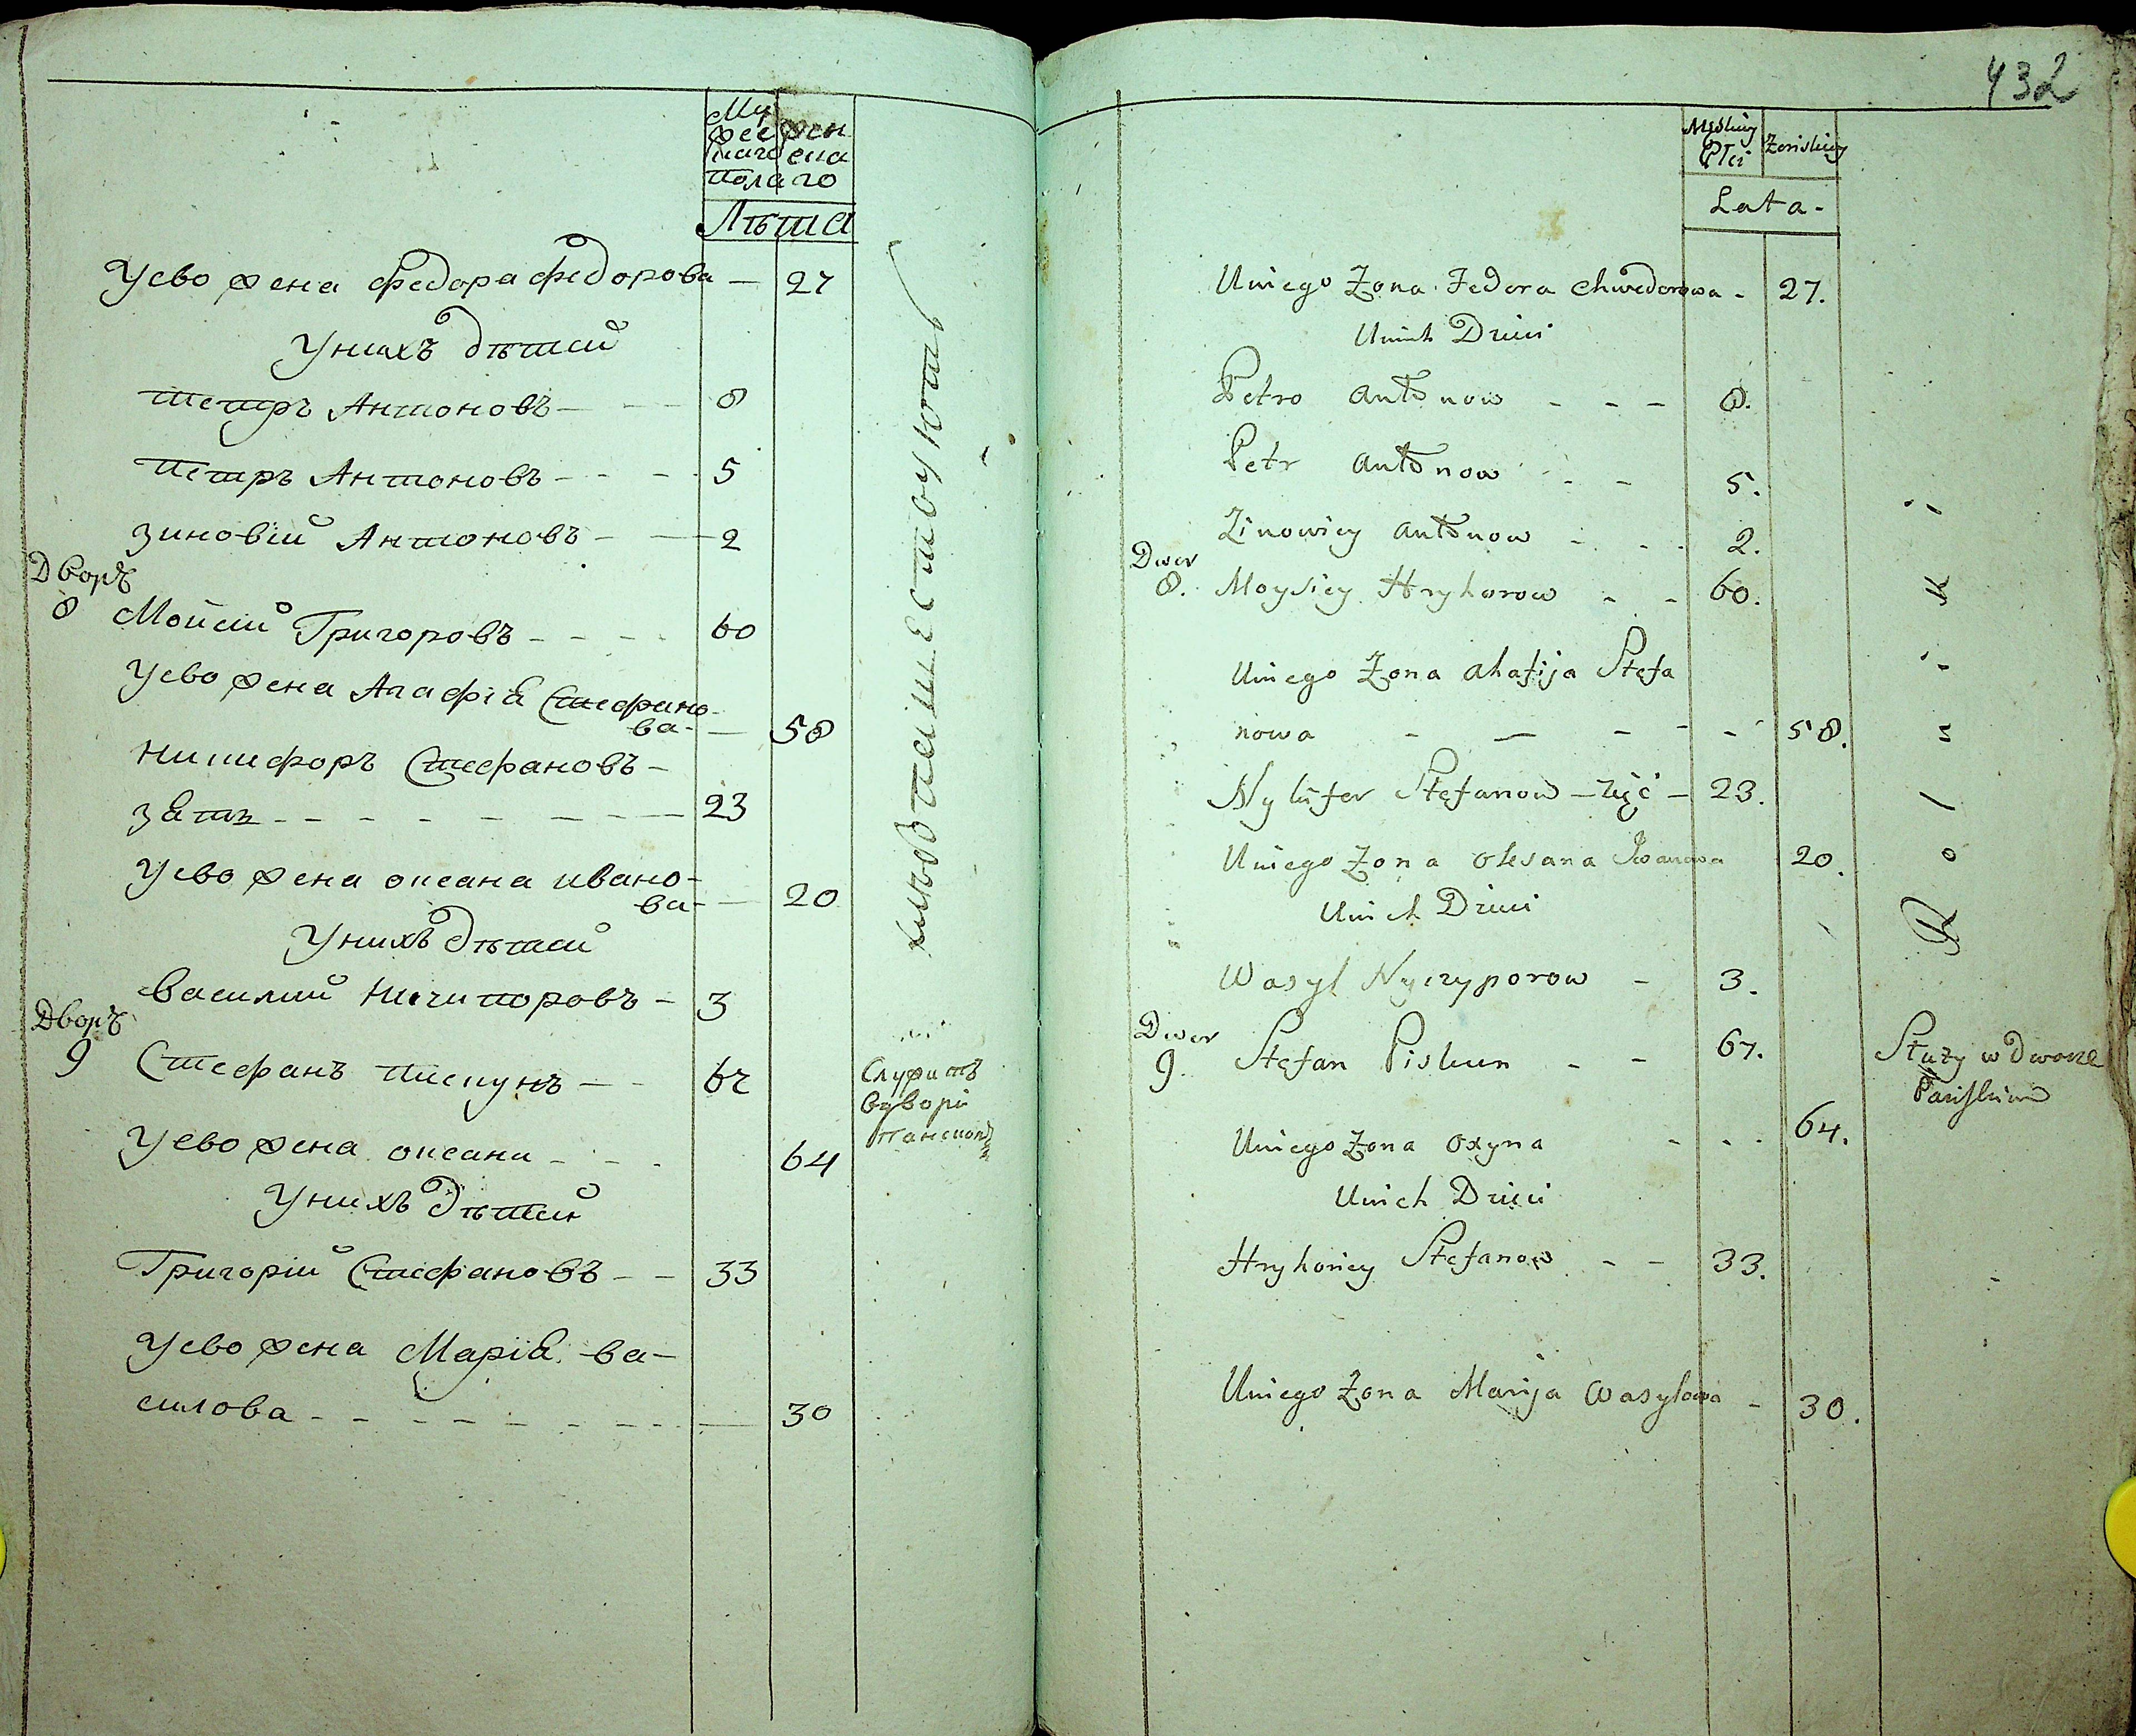 Му
жес жен
каго ска
пола го
Лѣта
Уево жена Федора Федорова — 27
Унихъ дѣтей
Петръ Антоновъ — — — 8
Петръ Антоновъ - - - 5
Зиновій Антоновъ - — 2
Дворъ
8 Мойсій Григоровъ - - - - 60
Уево жена Агафія Стефано-
ва - — 58
Никифоръ Стефановъ -
зять - - - - - - - — 23
Уево жена Оксана Ивано-
ва - — 20
Унихъ дѣтей
Василий Ничипоровъ - 3
Дворъ
9 Стефанъ Пискунъ — - 67
Уево жена Оксана - - - 64
Унихъ дѣтей
Григорій Стефановъ - - 33
Уево жена Марія Ва-
силова - - - - - - - - — 30
хлѣбопашествуютъ
Служитъ
вдворѣ
432
Męskiey
Płci
Żeńskiey
Lata -
Uniego Żona Fedora Chwedorowa - 27.
Unich Dzieci
Petro Antonow - - - 8.
Petr Antonow - - - 5.
Zinowiey Antonow - - - 2.
Dwor
8. Moysiey Hryhorow - - 60.
Uniego Żona Ahafija Stefa
nowa - — - - - 58.
Nykifer Stefanow — zięć — 23.
Uniego Żona Oksana Iwanowa 20.
Unich Dzieci
Wasyl Nyczyporow - 3.
Dwor
9. Stefan Piskun - - 67.
Uniego Żona Oxyna - - - 64.
Unich Dzieci
Hryhoriey Stefanow - - 33.
Uniego Żona Marija Wasylowa - 30.
Rolniki
Służy w Dworze
Pańskim